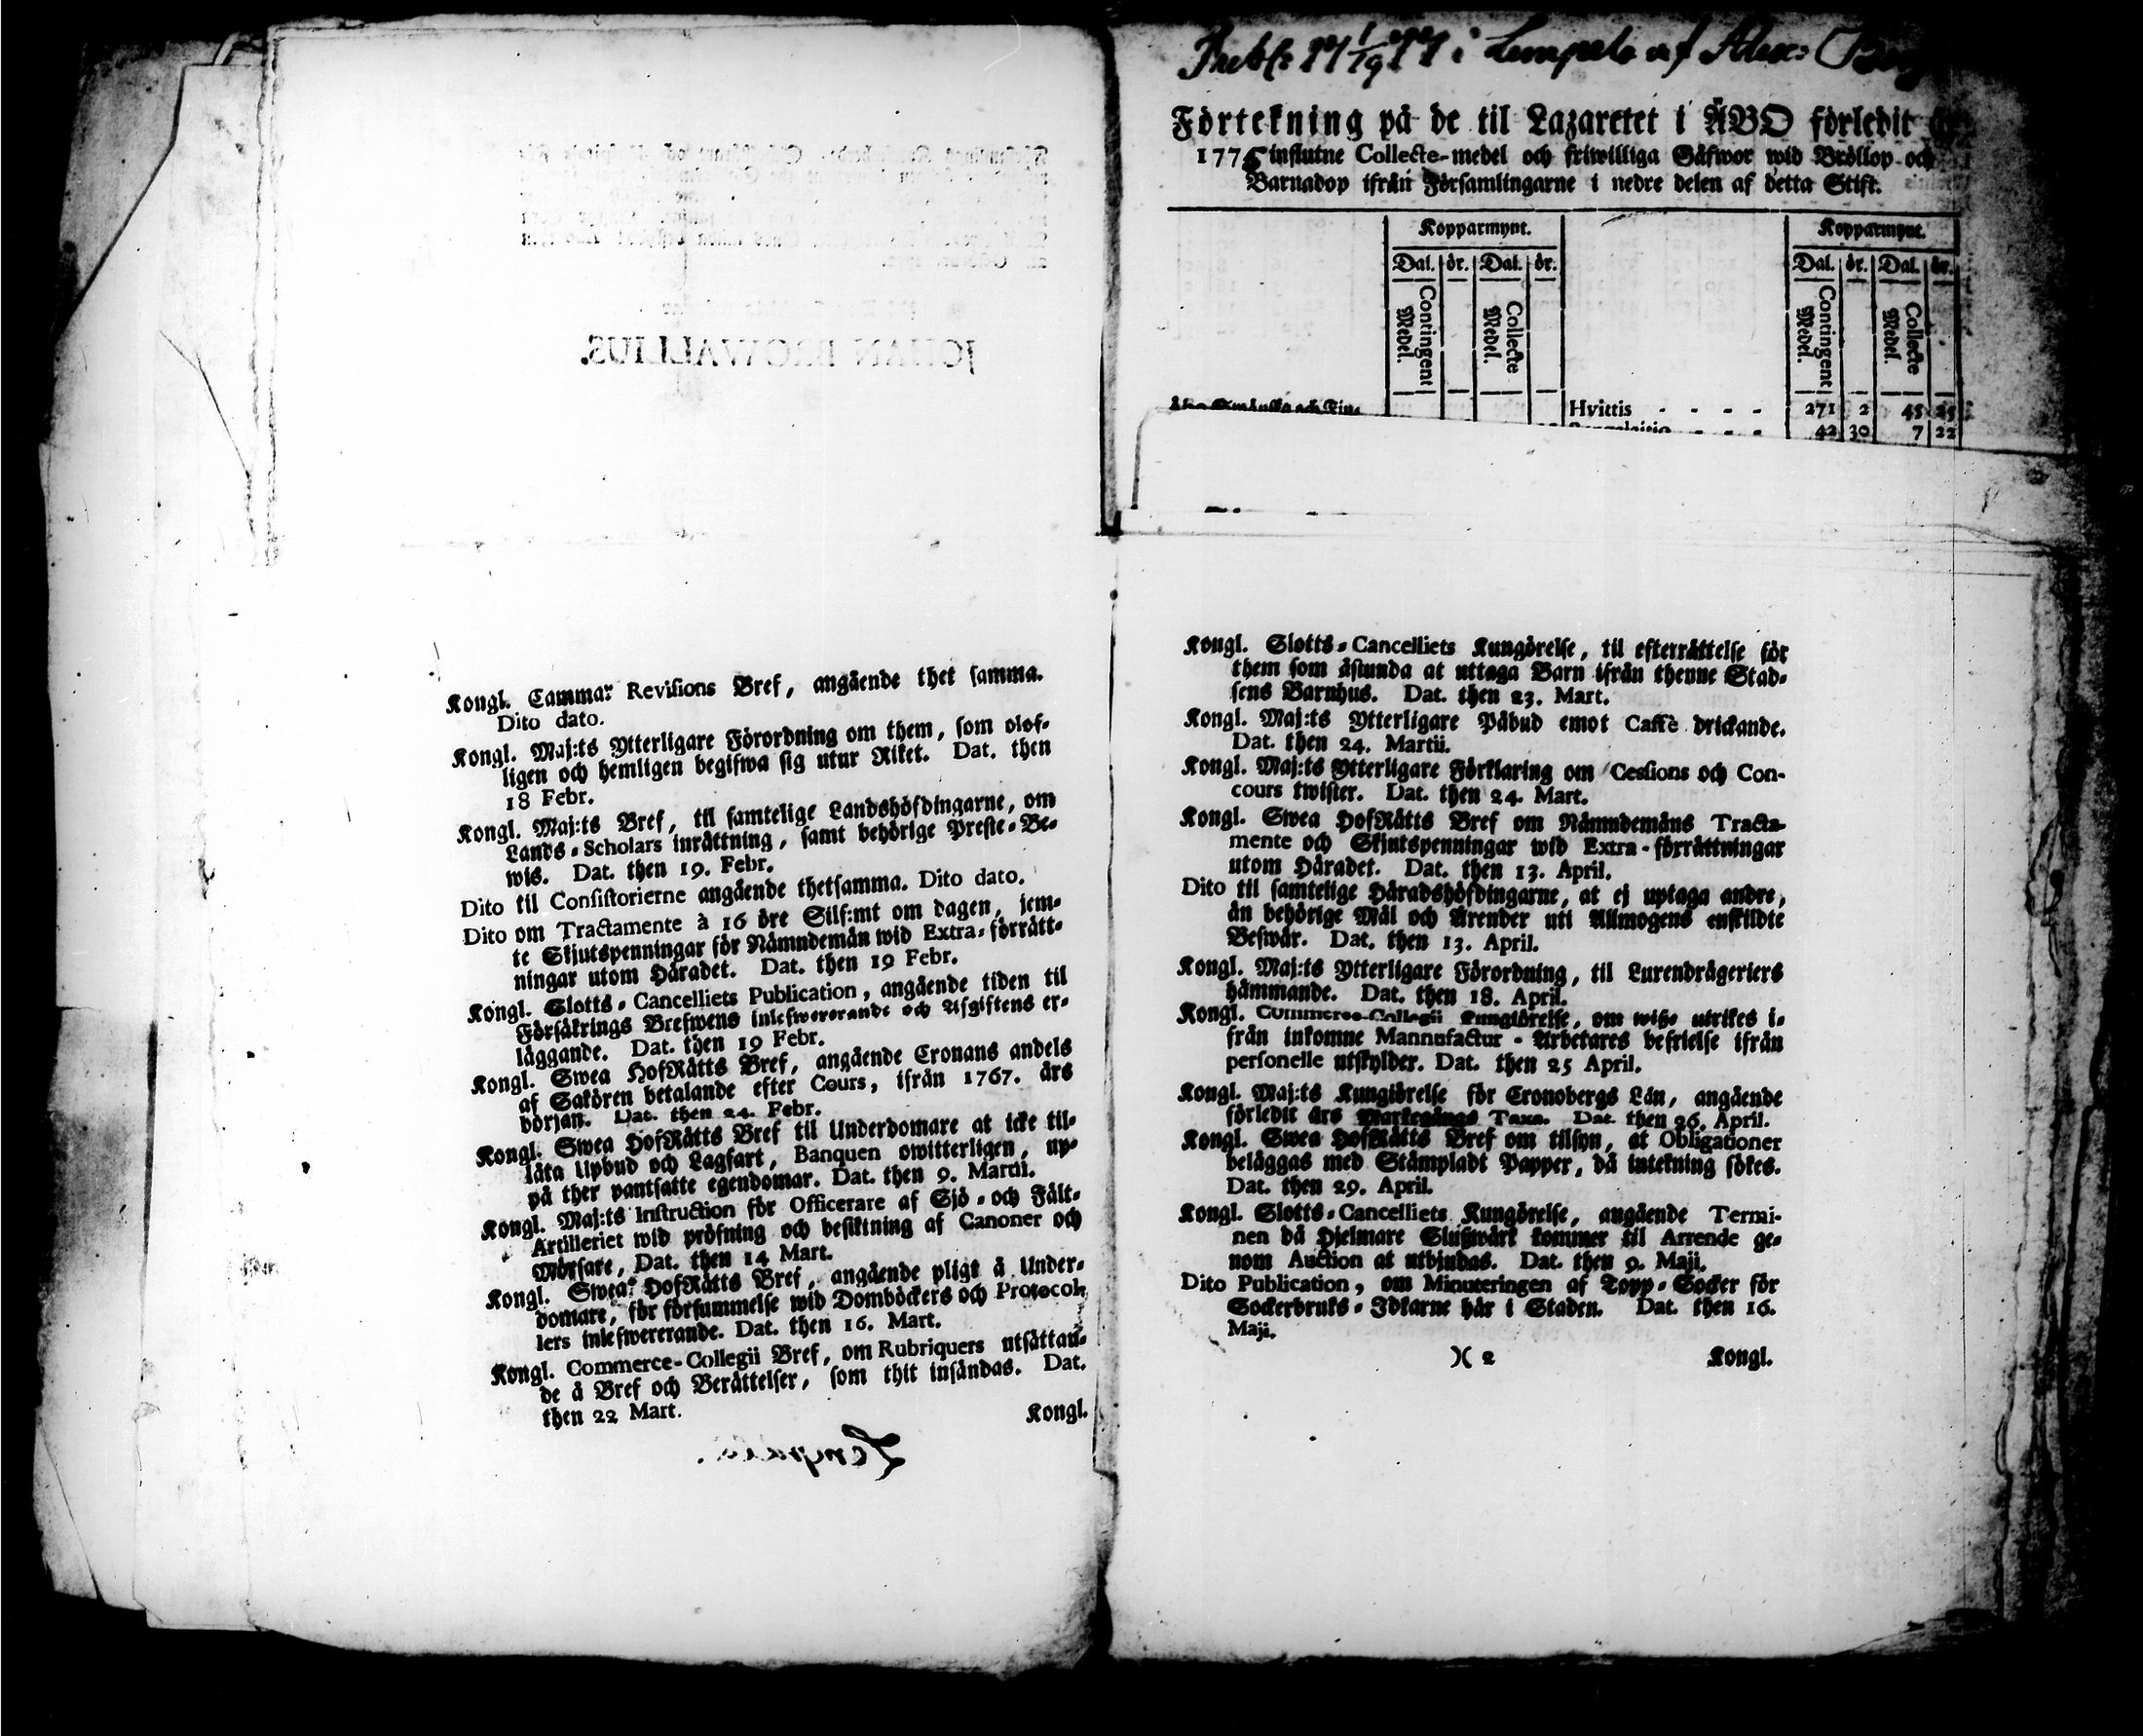 JOHAN BROWALLIUS.
Kongl. Cammar Revisions Bref, angående thet samma.
Dito dato.
Kongl. Maj:ts Ytterligare Förordning om them, som olof-
ligen och hemligen begifwa sig utur Riket. Dat. then
18 Febr.
Kongl. Maj:ts Bref, til samtelige Landshöfdingarne, om
Lands-Scholars inrättning, samt behörige Preste-Be-
wis. Dat. then 19. Febr.
Dito til Consistorierne angående thetsamma. Dito dato.
Dito om Tractamente à 16 öre Silf:mt om dagen, jem-
te Skjutspenningar för Nämndemän wid Extra-förrätt-
ningar utom Häradet. Dat. then 19 Febr.
Kongl. Slotts-Cancelliets Publication, angående tiden til
Försäkrings Brefwens inlefwererande och Afgiftens er-
läggande. Dat. then 19 Febr.
Kongl. Swea HofRätts Bref, angående Cronans andels
af Saköron betalande efter Cours, ifrån 1767. års
början. Dat. then 24. Febr.
Kongl. Swea HofRätts Bref til Underdomare at icke til-
låta Upbud och Lagfart, Banquen owitterligen, up-
på ther pantsatte egendomar. Dat. then 9. Martii.
Kongl. Maj:ts Instruction för Officerare af Sjö-och Fält-
Artilleriet wid pröfning och besiktning af Canoner och
Mörsare, Dat. then 14 Mart.
Kongl. Swea HofRätts Bref, angående pligt å Under-
domare, för försummelse wid Domböckers och Protocol-
lers inlefwererande. Dat. then 16. Mart.
Kongl. Commerce-Collegii Bref, om Rubriquers utsättan-
de å Bref och Berättelser, som thit insändas. Dat.
then 22 Mart.
Kongl.
i Lempelo af
Förtekning på de til Lazaretet i ÅBO förledit
1775 influtne Collecte-medel och friwilliga Gåfwor wid Bröllop och
Barnadop ifrån Församlingarne i nedre delen af detta Stift.
Kopparmynt. Kopparmynt.
Dal. ör. Dal. ör. Dal. ör. Dal. ör.
Contingent Medel. Collecte Medel. Contingent Medel. Collecte Medel.
Hvittis - - - - 271 2 45 25
42 30 7 22
Kongl. Slotts-Cancelliets Kungörelse, til efterrättelse för
them som åstunda at uttaga Barn ifrån thenne Stad-
sens Barnhus. Dat. then 23. Mart.
Kongl. Maj:ts Ytterligare Påbud emot Caffè drickande.
Dat. then 24. Martii.
Kongl. Maj:ts Ytterligare Förklaring om Cessions och Con-
cours twister. Dat. then 24. Mart.
Kongl. Swea HofRätts Bref om Nämndemäns Tracta-
mente och Skjutspenningar wid Extra-förrättningar
utom Häradet. Dat. then 13. April.
Dito til samtelige Häradshöfdingarne, at ej uptaga andre,
än behörige Mål och Ärender uti Allmogens enskildte
Beswär. Dat. then 13. April.
Kongl. Maj:ts Ytterligare Förordning, til Lurendrägeriers
hämmande. Dat. then 18. April.
Kongl. Commerce-Collegii Kungiörelse, om wisze utrikes i-
från inkomne Mannufactur-Arbetares befrielse ifrån
personelle utskylder. Dat. then 25 April.
Kongl. Maj:ts Kungiörelse för Cronobergs Län, angående
förledit års Markegångs Taxa. Dat. then 26. April.
Kongl. Swea HofRätts Bref om tilsyn, at Obligationer
beläggas med Stämpladt Papper, då intekning sökes.
Dat. then 29. April.
Kongl. Slotts-Cancelliets Kungörelse, angående Termi-
nen då Hjelmare Sluszwärk kommer til Arrende ge-
nom Auction at utbjudas. Dat. then 9. Maji.
Dito Publication, om Minuteringen af Topp-Socker för
Sockerbruks-Idkarne här i Staden. Dat. then 16.
Maji.
)( 2 Kongl.